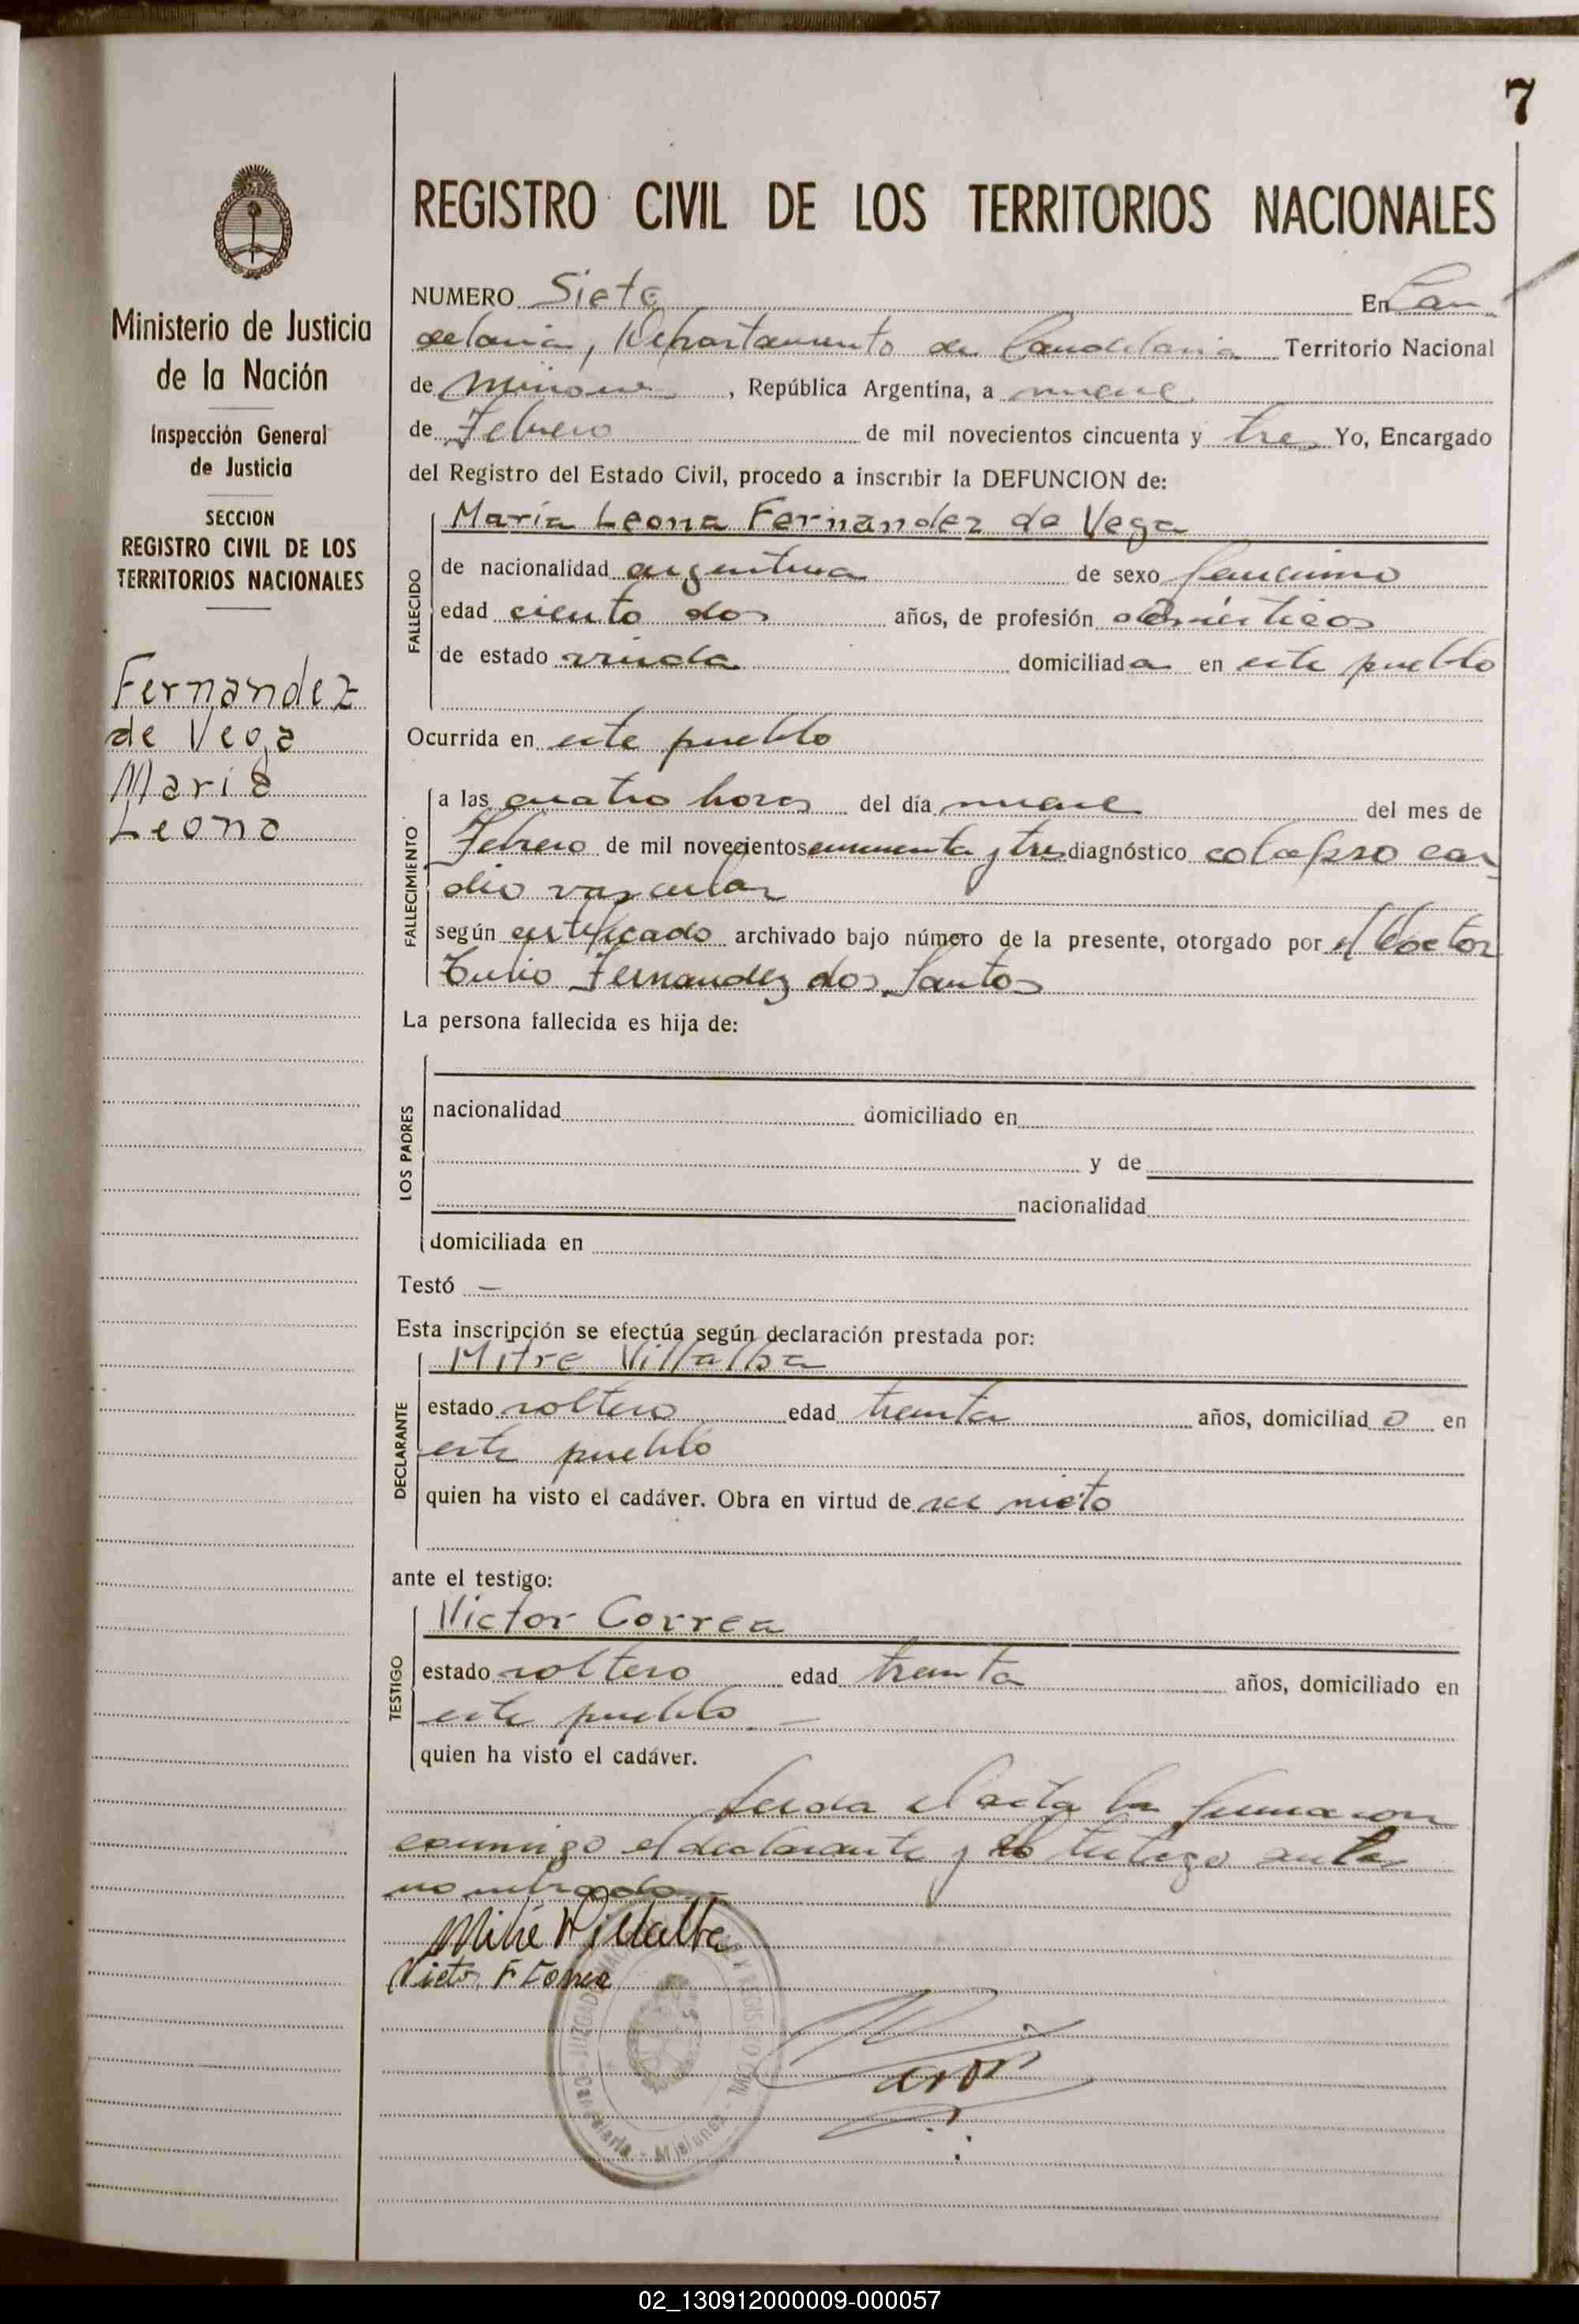 7
REGISTRO CIVIL DE LOS TERRITORIOS NACIONALES
Ministerio de Justicia
de la Nación
Inspección General
de Justicia
SECCION
REGISTRO CIVIL DE LOS
TERRITORIOS NACIONALES
Fernandez
de Vega
Maria
Leona
NUMERO Siete En Can
delaria, Departamento de Candelaria Territorio Nacional
de Misiones, República Argentina, a nueve
de Febrero de mil novecientos cincuenta y tres Yo, Encargado
del Registro del Estado Civil, procedo a inscribir la DEFUNCION de:
FALLECIDO
María Leona Fernandez de Vega
de nacionalidad argentina de sexo femenino
edad ciento dos años, de profesión domésticos
de estado viuda domiciliada en este pueblo
Ocurrida en este pueblo
FALLECIMIENTO
a las cuatro horas del día nueve del mes de
Febrero de mil novecientos cincuenta y tres diagnóstico colapso car
dio vascular
según certificado archivado bajo número de la presente, otorgado por el doctor
Tulio Fernandez dos Santos
La persona fallecida es hija de:
LOS PADRES
nacionalidad domiciliado en
y de
nacionalidad
domiciliada en
Testó —
Esta inscripción se efectúa según declaración prestada por:
DECLARANTE
Mitre Villalba
estado soltero edad treinta años, domiciliado en
este pueblo
quien ha visto el cadáver. Obra en virtud de ser nieto
ante el testigo:
TESTIGO
Victor Correa
estado soltero edad treinta años, domiciliado en
este pueblo —
quien ha visto el cadáver.
Leida el acta la firmaron
conmigo el declarante y el testigo antes
nombrado.—
Mitre Villalba
Victor F Correa
Candelaria - Misiones -
02_130912000009-000057